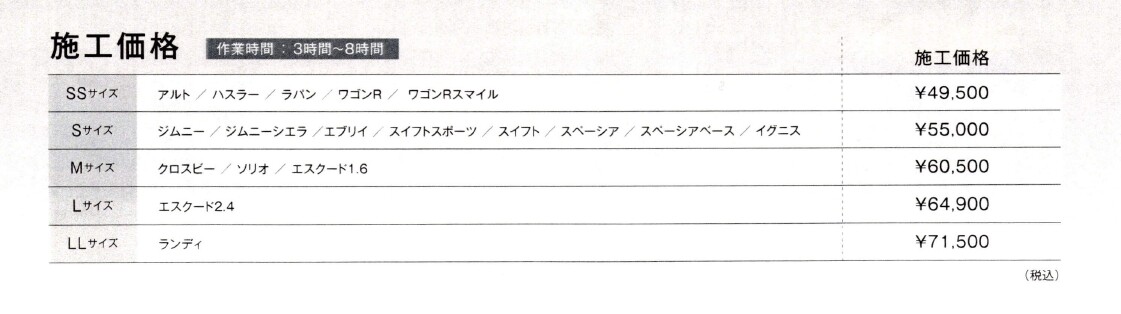 施工価格 作業時間：3時間～8時間
施工価格
SSサイズ アルト ／ ハスラー ／ ラパン ／ ワゴンR ／ ワゴンRスマイル ¥49,500
Sサイズ ジムニー ／ ジムニーシエラ ／エブリイ ／ スイフトスポーツ ／ スイフト ／ スペーシア ／ スペーシアベース ／ イグニス ¥55,000
Mサイズ クロスビー ／ ソリオ ／ エスクード1.6 ¥60,500
Lサイズ エスクード2.4 ¥64,900
LLサイズ ランディ ¥71,500
（税込）